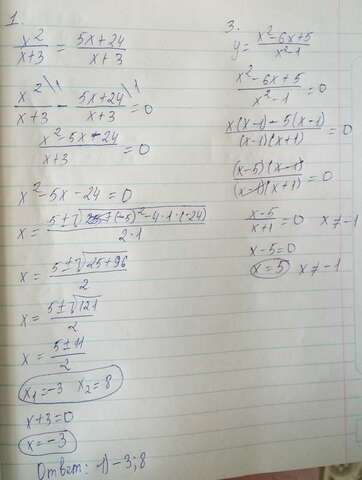 1.
x²/(x+3) = (5x+24)/(x+3)
x²\1/(x+3) - (5x+24)\1/(x+3) = 0
(x²-5x-24)/(x+3) = 0
x²-5x-24=0
x = (5±√((-5)²-4·1·(-24)))/(2·1)
x = (5±√(25+96))/2
x = (5±√121)/2
x = (5±11)/2
x₁=-3 x₂=8
x+3=0
x=-3
Ответ: 1) -3; 8
3.
y = (x²-6x+5)/(x²-1)
(x²-6x+5)/(x²-1) = 0
(x(x-1)-5(x-1))/((x-1)(x+1)) = 0
((x-5)(x-1))/((x-1)(x+1)) = 0
(x-5)/(x+1) = 0 x≠-1
x-5=0
x=5 x≠-1